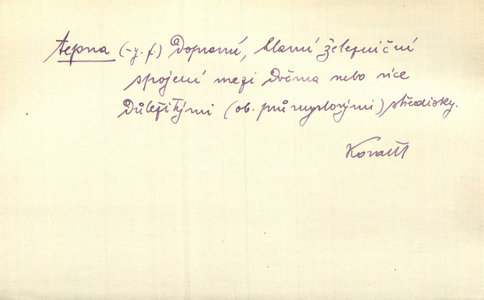 tepna (-y, f.) Dopravní, hlavní železniční
spojení mezi dvěma nebo více
důležitými (ob. průmyslovými) středisky.